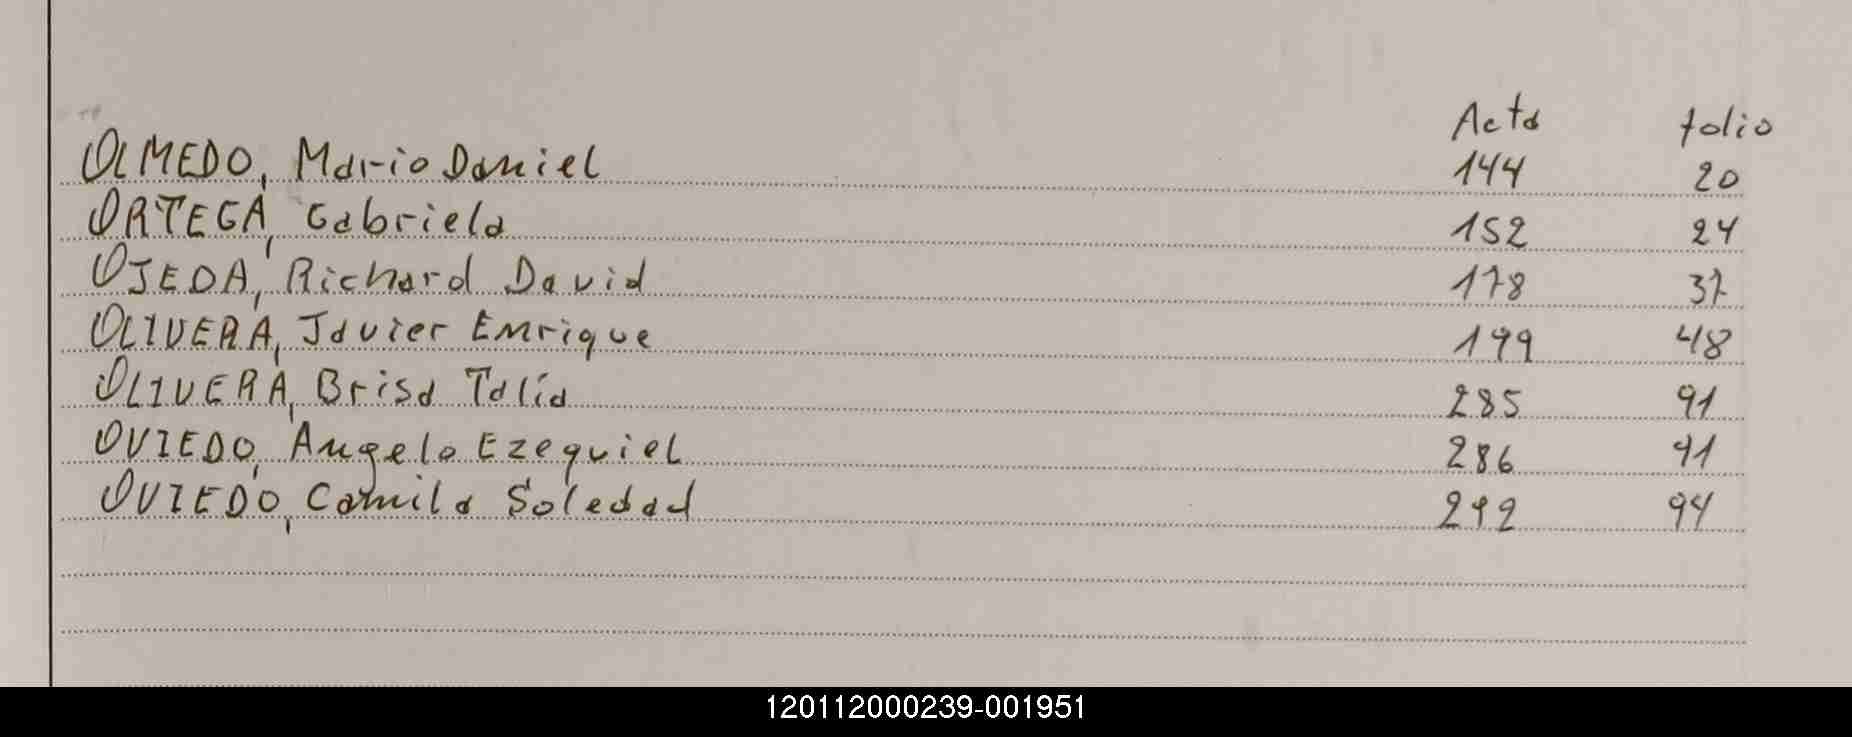 Acta folio
OLMEDO, Mario Daniel 144 20
ORTEGA, Gabriela 152 24
OJEDA, Richard David 178 37
OLIVERA, Javier Enrique 199 48
OLIVERA, Brisa Talía 285 91
OVIEDO, Angelo Ezequiel 286 91
OVIEDO, Camila Soledad 292 94
120112000239-001951